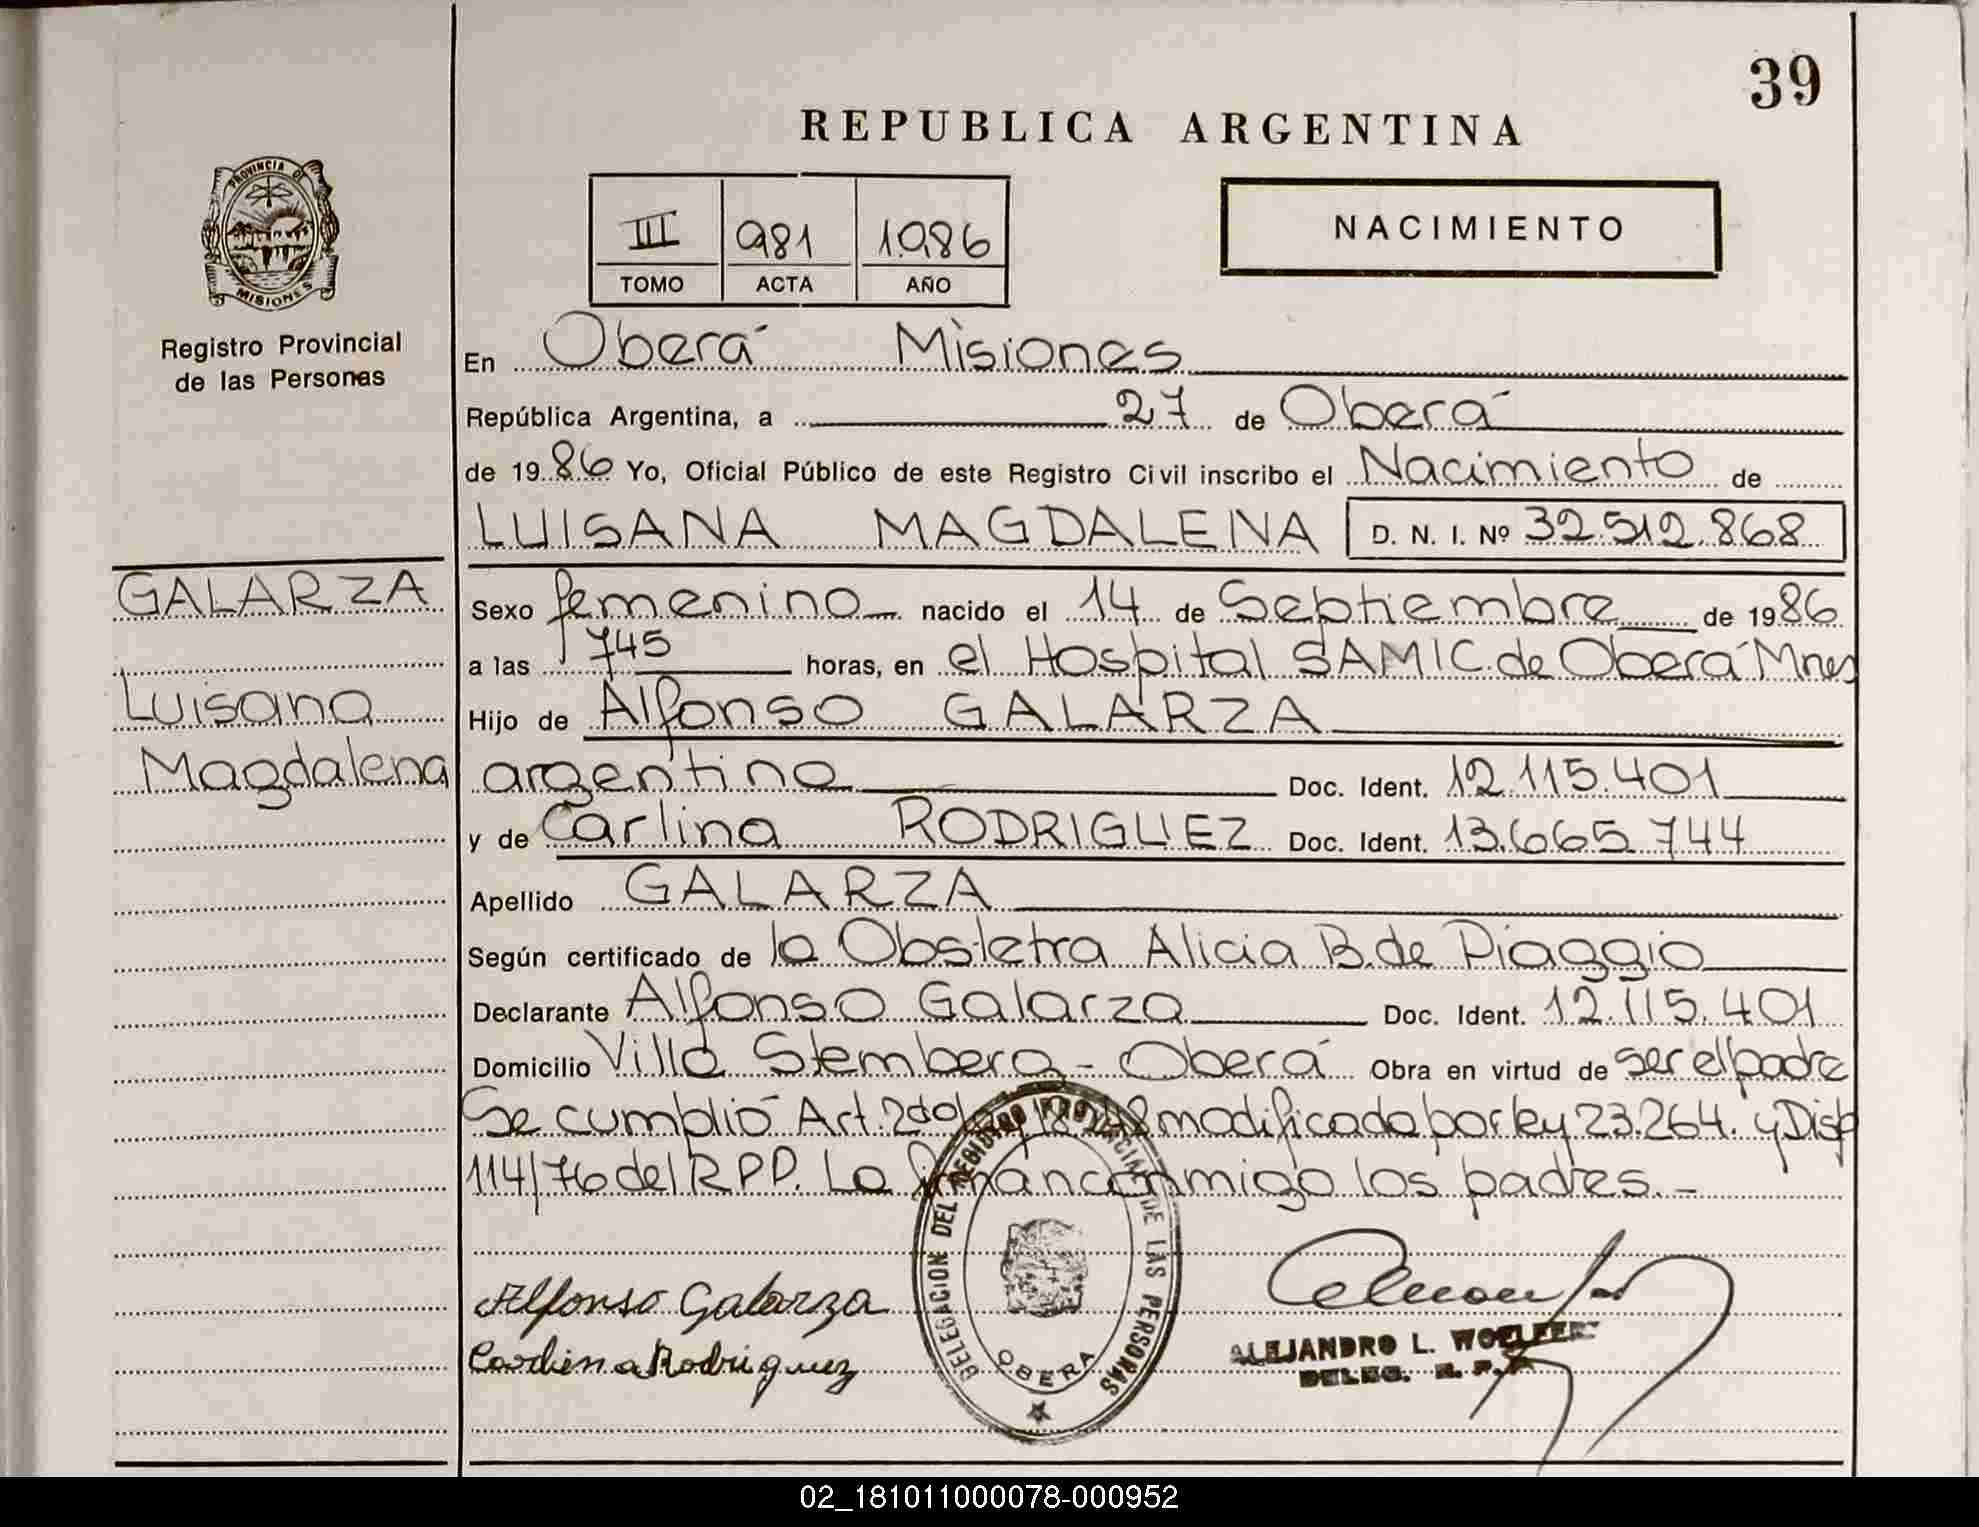 39
REPUBLICA ARGENTINA
PROVINCIA DE
MISIONES
Registro Provincial
de las Personas
III 981 1986
TOMO ACTA AÑO
NACIMIENTO
En Oberá Misiones
República Argentina, a 27 de Oberá
de 1986 Yo, Oficial Público de este Registro Civil inscribo el Nacimiento de
LUISANA MAGDALENA D. N. I. Nº 32.512.868
GALARZA
Luisana
Magdalena
Sexo femenino nacido el 14 de Septiembre de 1986
a las 745 horas, en el Hospital SAMIC de Oberá Mnes
Hijo de Alfonso GALARZA
argentino Doc. Ident. 12.115.401
y de Carlina RODRIGUEZ Doc. Ident. 13.665.744
Apellido GALARZA
Según certificado de la Obstetra Alicia B. de Piaggio
Declarante Alfonso Galarza Doc. Ident. 12.115.401
Domicilio Villa Stemberg - Oberá Obra en virtud de ser el padre
Se cumplió Art. 2do 18.248 modificada por ley 23.264. y Disp
114/76 del R.P.P. La firman conmigo los padres. -
Alfonso Galarza
Rodriguez
DELEGACION DEL REGISTRO PROVINCIAL DE LAS PERSONAS
OBERA
ALEJANDRO L.
DELEG. R. P. P.
02_181011000078-000952